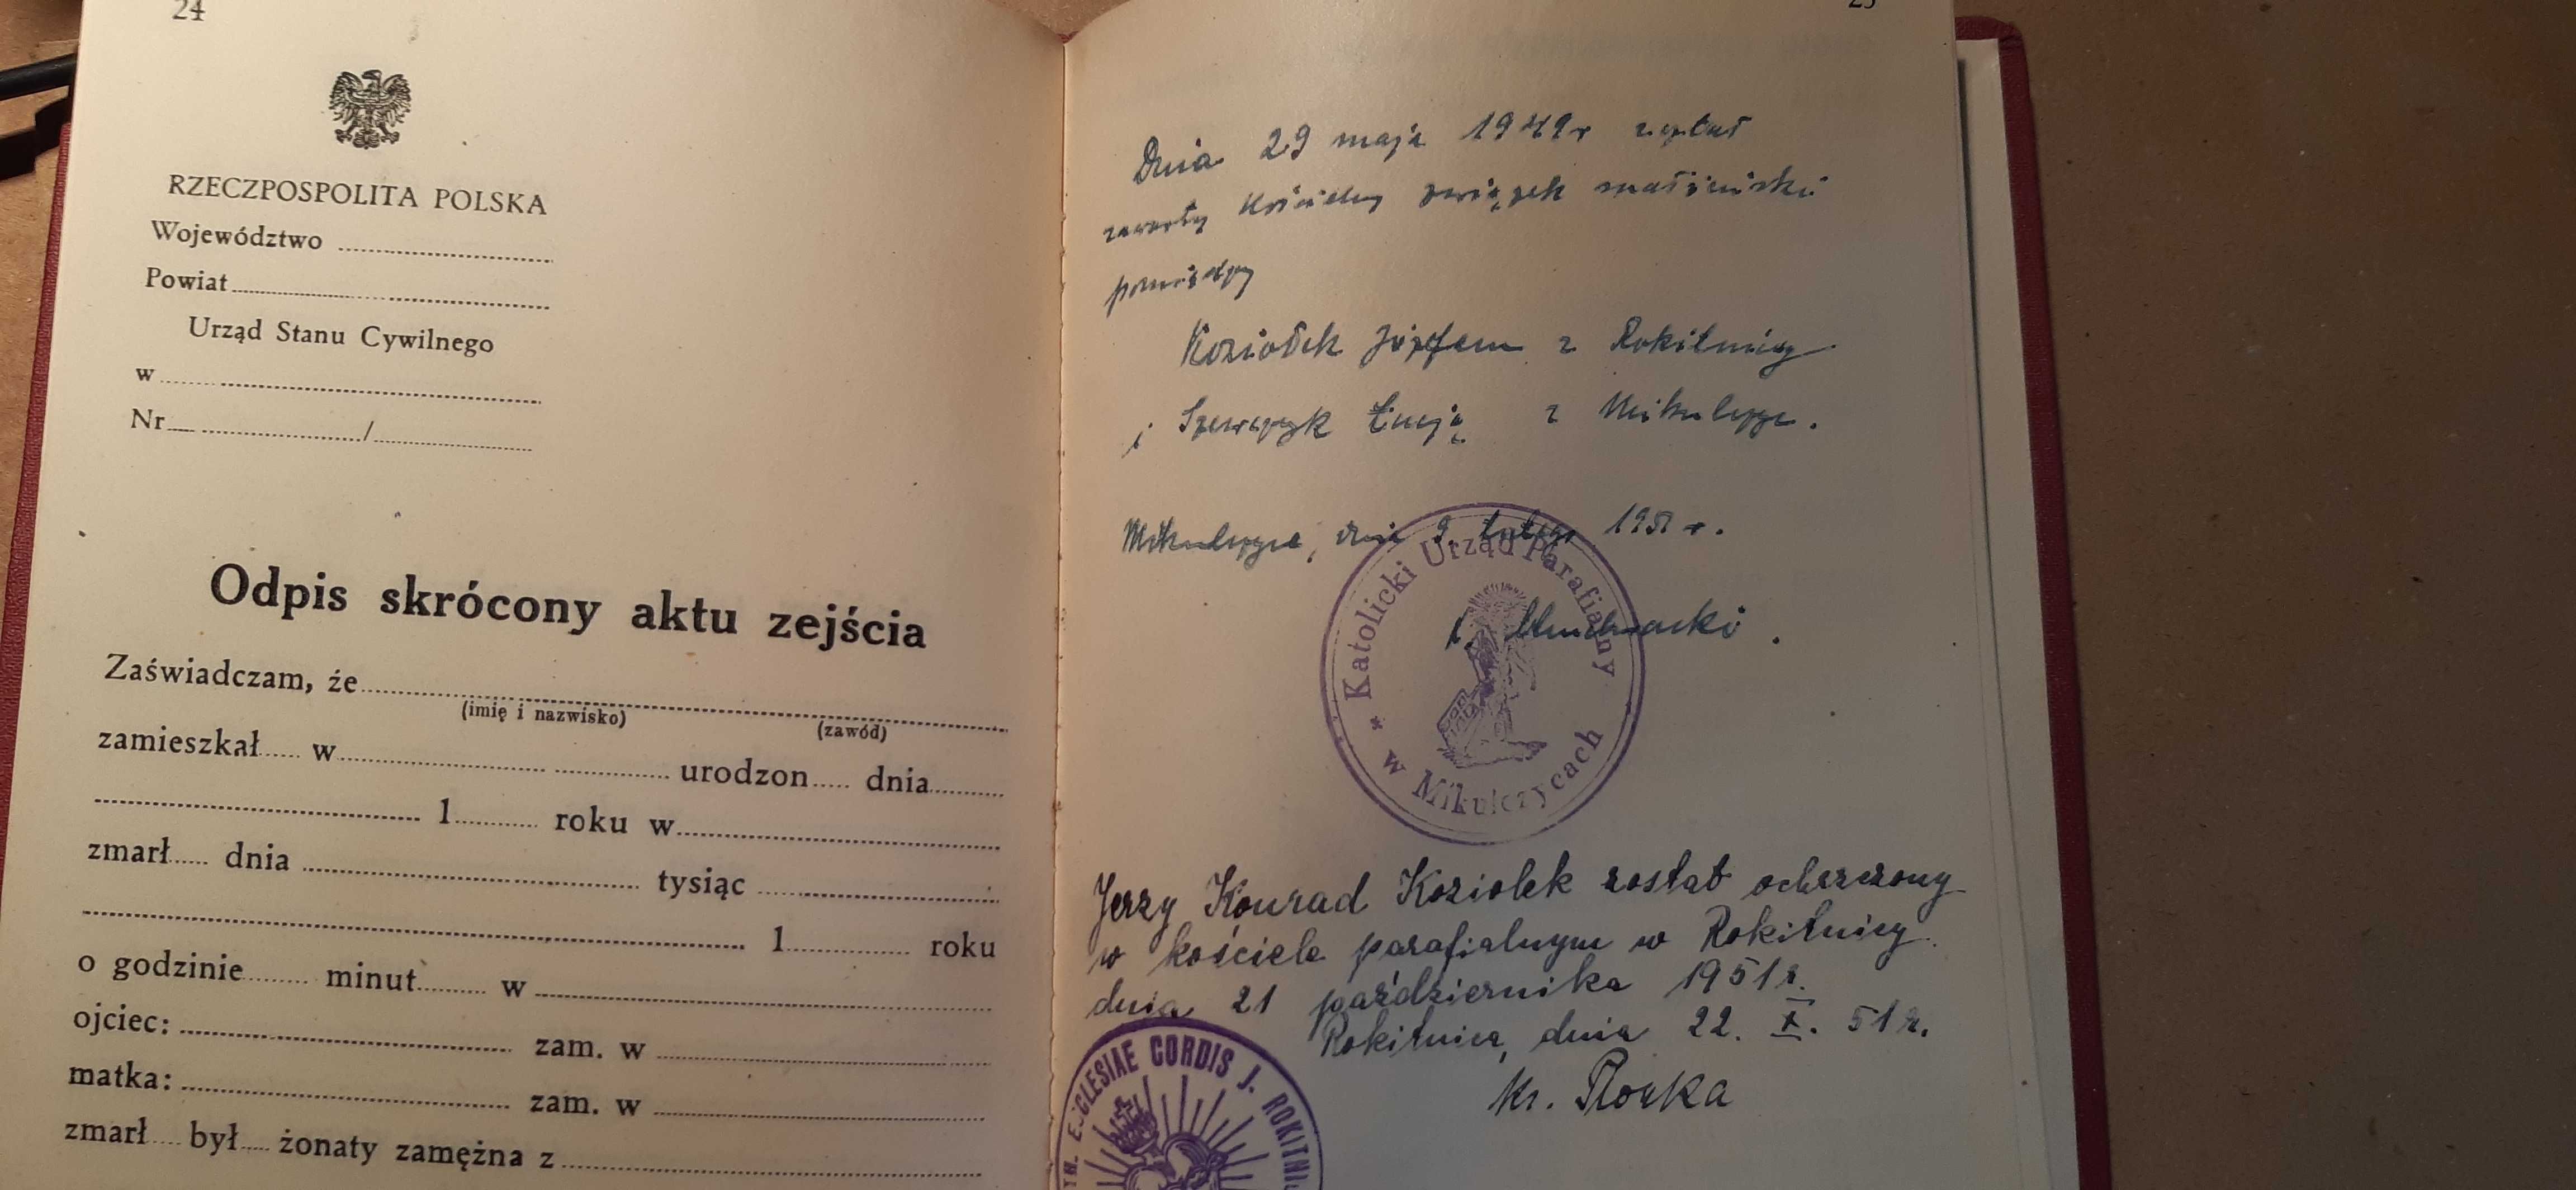 24
RZECZPOSPOLITA POLSKA
Województwo
Powiat
Urząd Stanu Cywilnego
w
Nr /
Odpis skrócony aktu zejścia
Zaświadczam, że
(imię i nazwisko) (zawód)
zamieszkał w urodzon dnia
1 roku w
zmarł dnia tysiąc
1 roku
o godzinie minut w
ojciec: zam. w
matka: zam. w
zmarł był żonaty zamężna z
25
Dnia 29 maja 1949r został
zawarty kościelny związek małżeński
pomiędzy
Koziołek Józefem z Rokitnicy
i Szewczyk Łucją z Mikulczyc.
Mikulczyce, dnia 9. lutego 1951 r.
Katolicki Urząd Parafialny
* w Mikulczycach
Jerzy Konrad Koziolek został ochrzczony
w kościele parafialnym w Rokitnicy
dnia 21 października 1951 r.
Rokitnica, dnia 22. X. 51 r.
ECCLESIAE CORDIS J. ROKITNI